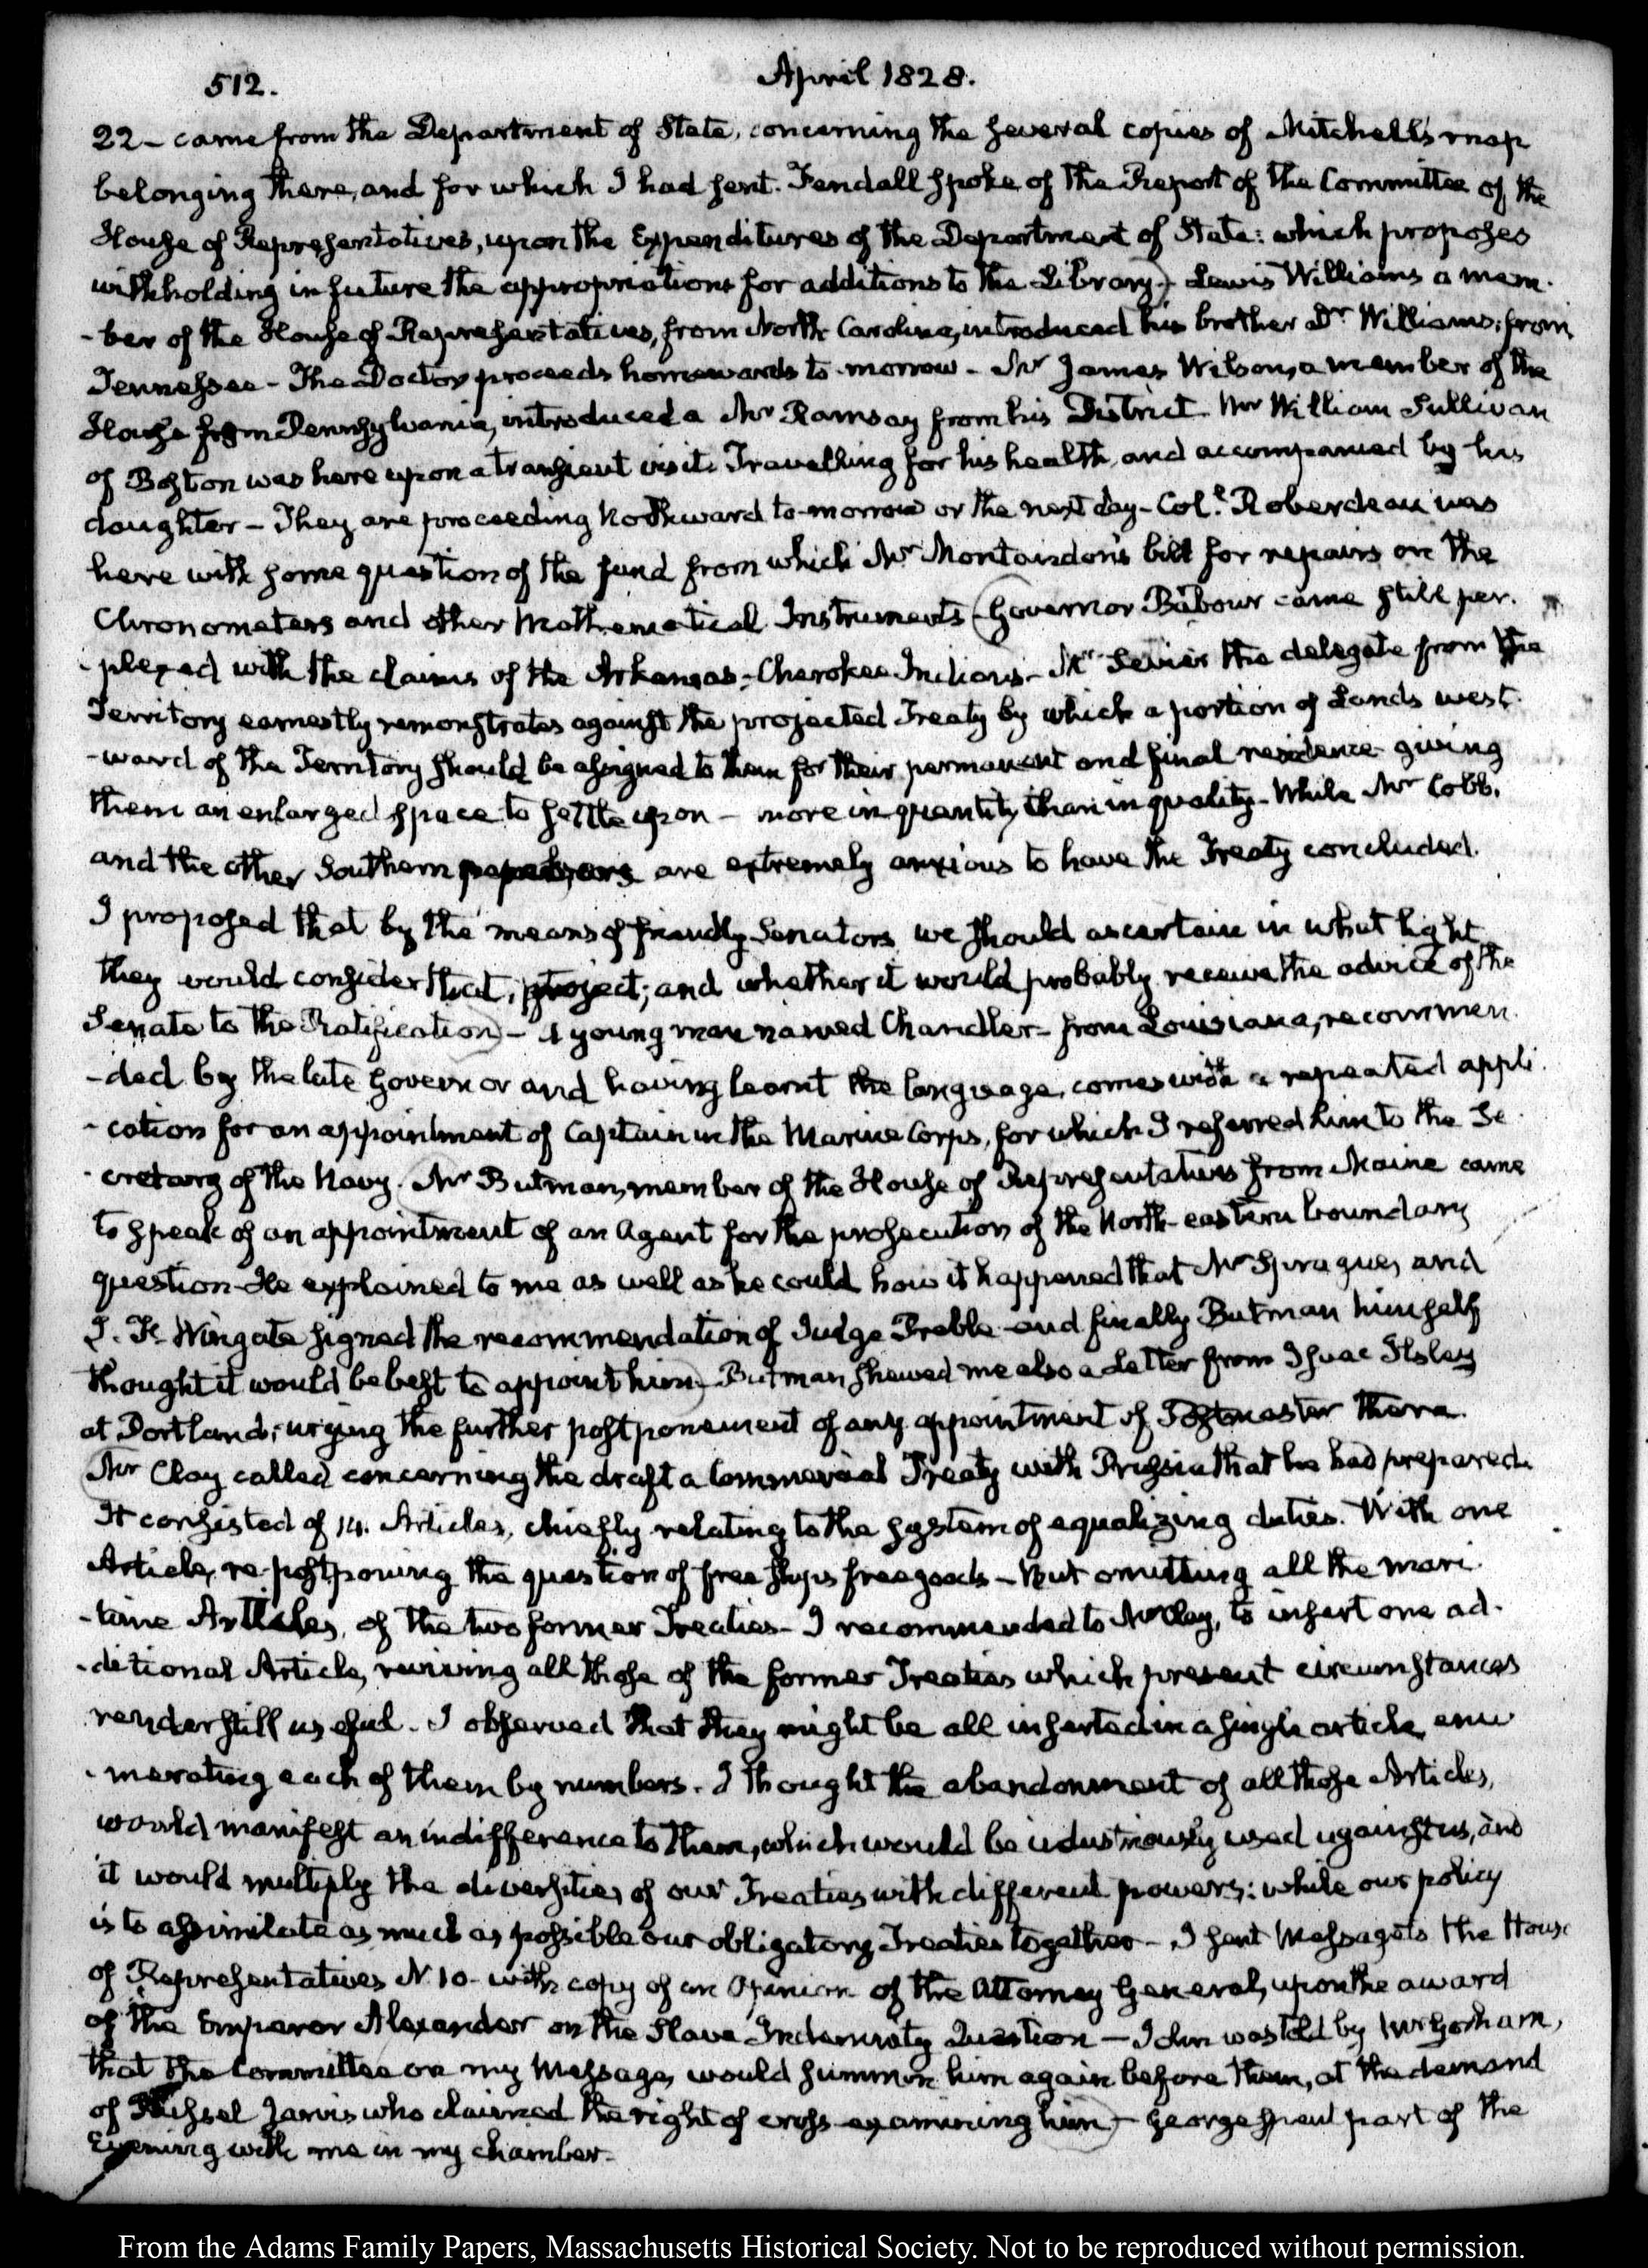 512.
April 1828.
22 – came from the Department of State, concerning the several copies of Mitchell's map
belonging there, and for which I had sent. Fendall spoke of the Report of the Committee of the
House of Representatives, upon the Expenditures of the Department of State: which proposes
withholding in future the appropriations for additions to the Library) – Lewis Williams a mem-
-ber of the House of Representatives, from North Carolina, introduced his brother Dr Williams, from
Tennessee – The Doctor proceeds homewards to-morrow – Mr James Wilson, a member of the
House from Pennsylvania, introduced a Mr Ramsay from his District. Mr William Sullivan
of Boston was here upon a transient visit. Travelling for his health, and accompanied by his
daughter – They are proceeding Northward to-morrow or the next day – Coll. Roberdeau was
here with some question of the fund from which Mr Montandon's bill for repairs on the
Chronometers and other Mathematical Instruments – (Governor Babour came still per-
-plexed with the claims of the Arkansas-Cherokee Indians – Mr Sevier the delegate from the
Territory earnestly remonstrates against the projected Treaty by which a portion of Lands west-
-ward of the Territory should be assigned to them for their permanent and final residence giving
them an enlarged space to settle upon – more in quantity than in quality – While Mr Cobb,
and the other Southern are extremely anxious to have the Treaty concluded.
I proposed that by the means of friendly Senators we should ascertain in what light
they would consider that project; and whether it would probably receive the advice of the
Senate to the Ratification) – A young man named Chandler – from Louisiana, recommen-
-ded by the late Governor and having learnt the language, comes with a repeated appli-
-cation for an appointment of Captain in the Marine Corps, for which I referred him to the Se-
-cretary of the Navy. (Mr Butman, member of the House of Representatives from Maine came
to speak of an appointment of an Agent for the prosecution of the North-eastern boundary
question – He explained to me as well as he could how it happened that Mr Sprague, and
J. F. Wingate signed the recommendation of Judge Preble – and finally Butman himself
thought it would be best to appoint him) – Butman shewed me also a Letter from Isaac Ilsley
at Portland; urging the further postponement of any appointment of Postmaster there.
(Mr Clay called concerning the draft a Commercial Treaty with Prussia that he had prepared.
It consisted of 14. Articles, chiefly relating to the system of equalizing duties. With one
Article, re-postponing the question of free ships free goods – But omitting all the mari-
-time Articles, of the two former Treaties – I recommended to Mr Clay, to insert one ad-
-ditional Article, reviving all those of the former Treaties which present circumstances
render still useful. I observed that they might be all inserted in a single article, enu
-merating each of them by numbers. I thought the abandonment of all those Articles,
would manifest an indifference to them, which would be idustriously used against us, and
it would multiply the diversities of our Treaties with different powers: while our policy
is to assimilate as much as possible our obligatory Treaties together – I sent Message to the House
of Representatives N. 10 – with copy of an Opinion of the Attorney General, upon the award
of the Emperor Alexander on the Slave Indemnity Question – John was told by Mr Gorham,
that the Committee on my Message, would summon him again before them, at the demand
of Russel Jarvis who claimed the right of cross-examining him) – George spent part of the
Evening with me in my chamber.
From the Adams Family Papers, Massachusetts Historical Society. Not to be reproduced without permission.